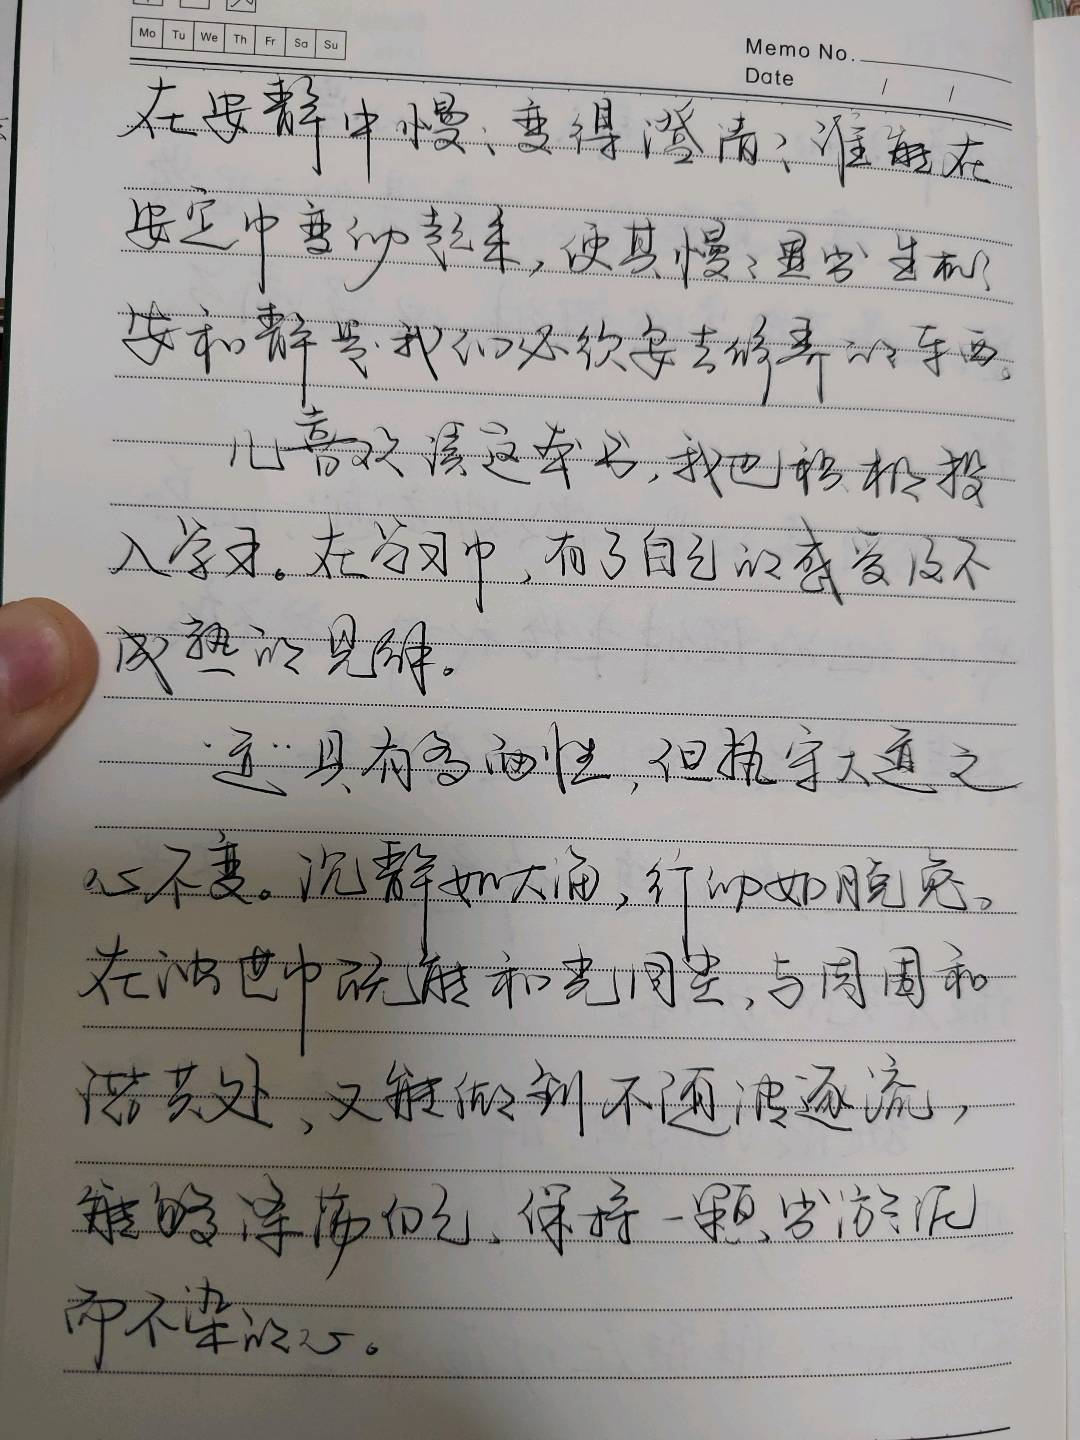 Mo Tu We Th Fr Sa Su
Memo No.
Date / /
在安静中慢、变得澄清；谁能在
安定中变动起来，使其慢、显出生机；
安和静是我们必须要去修养的东西。
儿喜欢读这本书，我也积极投
入学习。在学习中，有了自己的感受及不
成熟的见解。
“道”具有多面性，但执守大道之
心不变。沉静如大海，行动如脱兔。
在浊世中既能和光同尘，与周围和
谐共处，又能做到不随波逐流，
能够涤荡自己、保持一颗出淤泥
而不染的心。